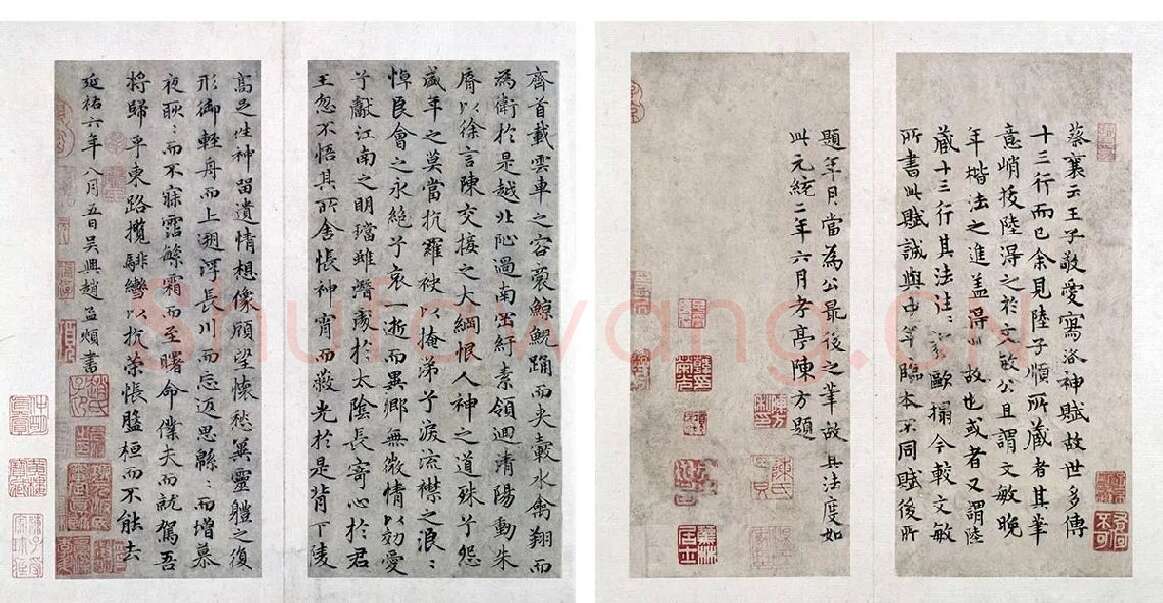 齊首載雲車之容裔鯨鯢踊而夾轂水禽翔而
為衛於是越北沚過南岡紆素領迴清陽動朱
脣以徐言陳交接之大綱恨人神之道殊兮怨
盛年之莫當抗羅袂以掩涕兮淚流襟之浪〻
悼良會之永絕兮哀一逝而異鄉無微情以効愛
兮獻江南之明璫雖潛處於太陰長寄心於君
王忽不悟其所舍悵神宵而蔽光於是背下陵
高足往神留遺情想像顧望懷愁冀靈軆之復
形御輕舟而上遡浮長川而忘思綿〻而增慕
夜耿〻而不寐霑繁霜而至曙命僕夫而就駕吾
將歸乎東路攬騑轡以抗策悵盤桓而不能去
延祐六年八月五日吳興趙孟頫書
蔡襄云王子敬愛寫洛神賦故世多傳
十三行而已余見陸子順所藏者其筆
意峭拔陸得之於文敏公且謂文敏晚
年楷法之進蓋得此故也或者又謂陸
藏十三行其法往〻歐今較文敏
所書此賦誠與中年臨本不同賦後所
題年月當為公最後之筆故其法度如
此元統二年六月孝亭陳方題
Shufawang.cn